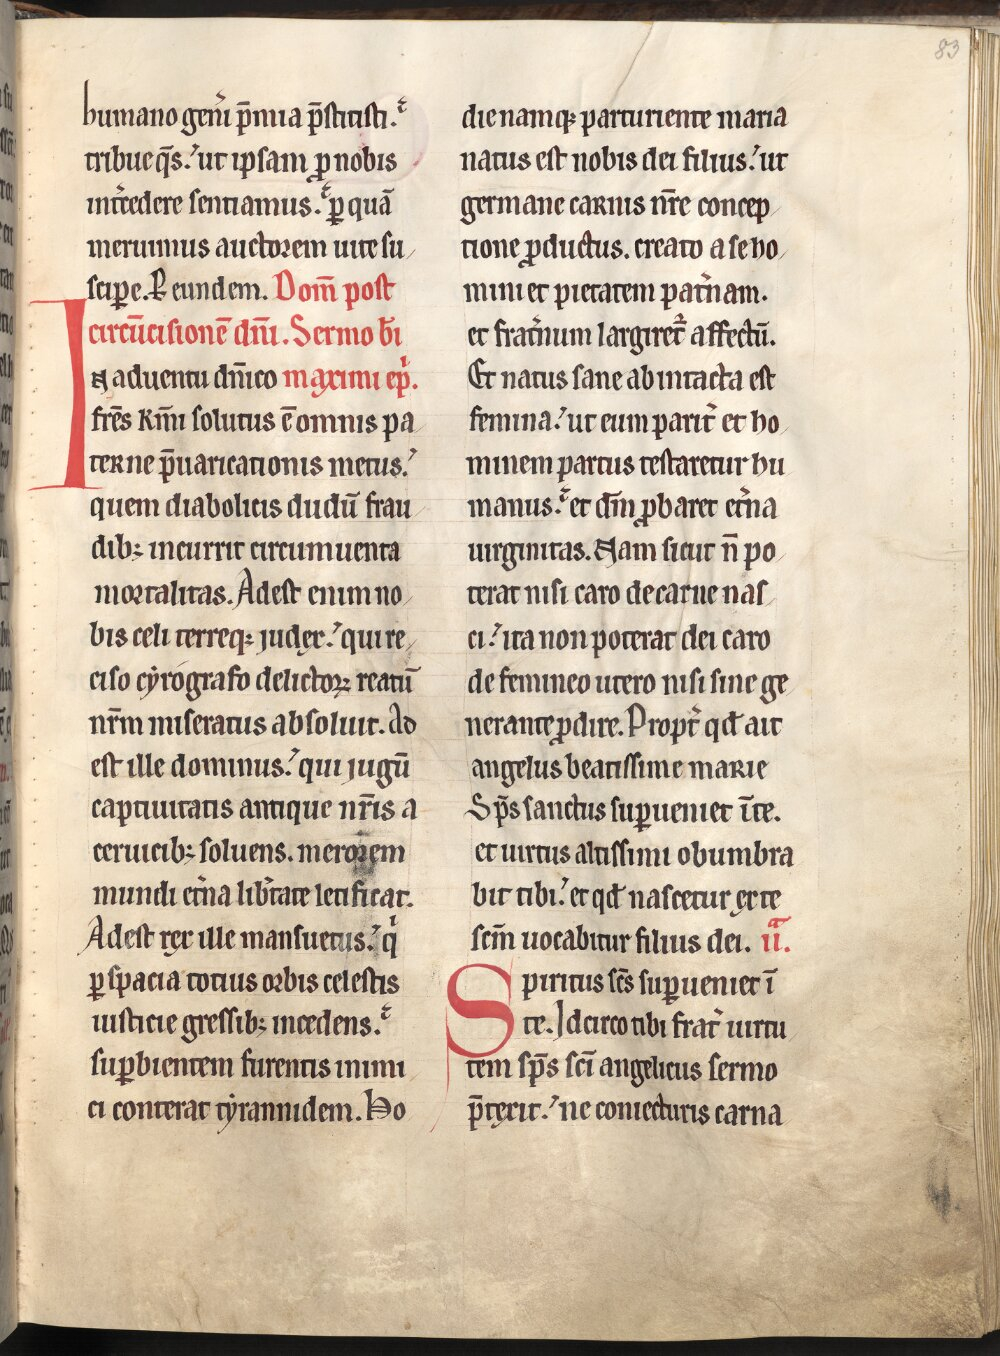 83
humano geñi p̄mia p̄stitisti.
tribue q̄s. ut ipsam ꝓ nobis
int̄cedere sentiamus. ꝑ quā
meruimus auctorem uite su
scipe. P eundem. Dom̄ post
circūcisionē dn̄i. Sermo b̄i
In aduentu dn̄ico maximi ep̄i.
fr̄es km̄i solutus ē omnis pa
terne p̄uaricationis metus.
quem diabolicis dudū frau
dibꝫ incurrit circumuenta
mortalitas. Adest enim no
bis celi terreqꝫ judex. qui re
ciso cyrografo delictoꝝ reatū
nr̄m miseratus absoluit. Ad
est ille dominus. qui jugū
captiuitatis antique nr̄is a
ceruicibꝫ soluens. merorem
mundi et̄na lib̄tate letificat.
Adest rex ille mansuetus. qͥ
ꝑ spacia totius orbis celestis
iusticie gressibꝫ incedens.
suꝑbientem furentis inimi
ci conterat tyrannidem. Ho
die namqꝫ parturiente maria
natus est nobis dei filius. ut
germane carnis nr̄e concep
tione ꝓductus. creato a se ho
mini et pietatem pat̄nam.
et frat̄num largiret̄ affectū.
Et natus sane ab intacta est
femina. ut eum parit̄ et ho
minem partus testaretur hu
manus. et dm̄ ꝓbaret et̄na
uirginitas. Nam sicut n̄ po
terat nisi caro de carne nas
ci. ita non poterat dei caro
de femineo utero nisi sine ge
nerante ꝓdire. Propt̄ qđ ait
angelus beatissime marie
Sp̄s sanctus suꝑueniet īte.
et uirtus altissimi obumbra
bit tibi. et qđ nascetur ex te
scm̄ uocabitur filius dei. iiͣ.
Spiritus sc̄s suꝑueniet ī
te. Idcirco tibi frat̄ uirtu
tem sp̄s sc̄i angelicus sermo
p̄texit. ne coniecturis carna